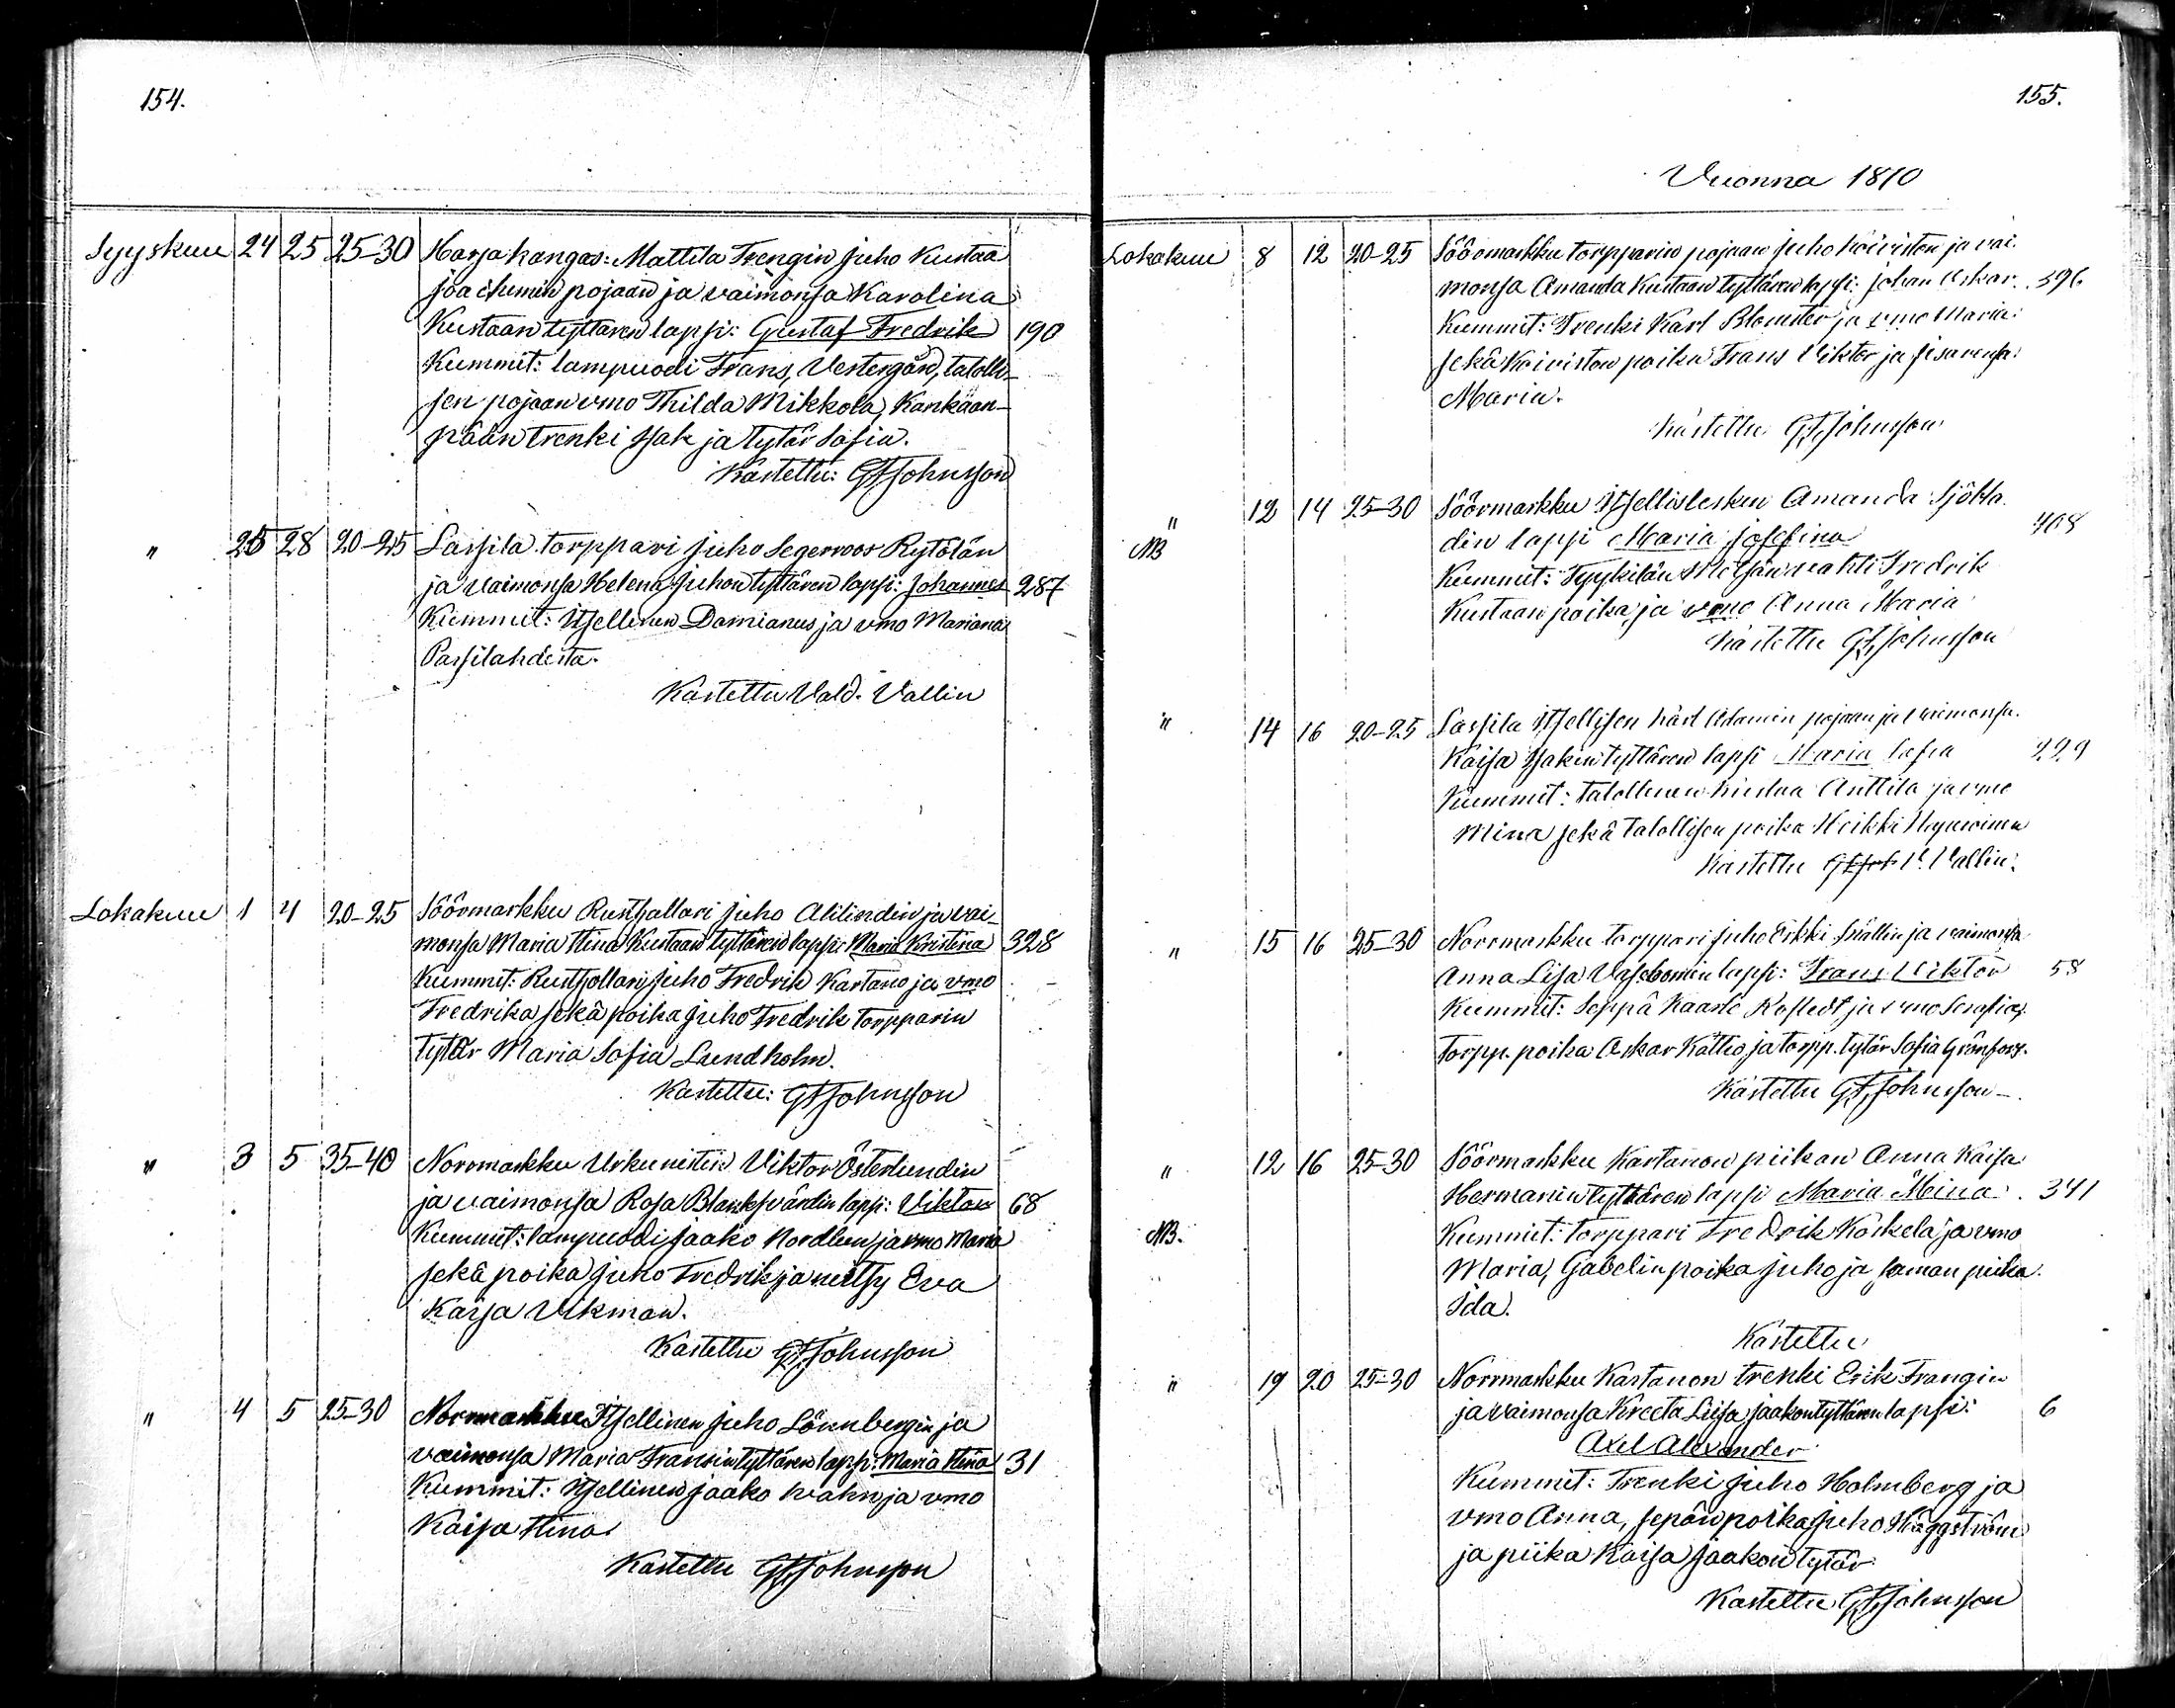 154.
Syyskuu 24 25 25-30 Harjakangas: Mattila Trengin Juho Kustaa
Joachimin pojaan ja vaimonsa Karolina
Kustaan tyttären lapsi: Gustaf Fredrik 190
Kummit: lampuodi Frans, Vestergård, talolli-
sen pojaan vmo Thilda Mikkola, Kankään-
pään trenki Isak ja tytär Sofia.
Kastettu: GF Johnsson
" 25 28 20-25 Lassila torppari Juho Segerroos Rytölän
ja vaimonsa Helena Juhon tyttären lapsi: Johannes 287
Kummit: Itsellinen Damianus ja vmo Mariana
Passilahdesta.
Kastettu Vald. Vallin
Lokakuu 1 4 20-25 Söörmarkku Rusthallari Juho Alilindin ja vai-
monsa Maria Stina Kustaan tyttären lapsi: Maria Kristina 328
Kummit: Rusthollari Juho Fredrik Kartano ja vmo
Fredrika sekä poika Juho Fredrik torpparin
tytär Maria Sofia Lundholm.
Kastettu: GF Johnsson
" 3 5 35-40 Norrmarkku Urkunistin Viktor Österlundin
ja vaimonsa Rosa Blanksvärdin lapsi: Viktor 68
Kummit: lampuodi Jaako Nordlun ja vmo Maria
sekä poika Juho Fredrik ja neitsy Eva
Kaisa Vikman.
Kastettu GF Johnsson
" 4 5 25-30 Norrmarkku Itsellinen Juho Lönnbergin ja
vaimonsa Maria Fransin tyttären lapsi: Maria Stina 31
Kummit: Itsellinen Jaako hvahn ja vmo
Kaisa Stina
Kastettu GF Johnsson
155.
Vuonna 1810
Lokakuu 8 12 20-25 Söörmarkku torpparin pojaan Juho Koiviston ja vai-
monsa Amanda Kustaan tyttären lapsi: Johan Oskar. 396
Kummit: Trenki Karl Blomster ja vmo Maria
sekä Koiviston poika Frans Viktor ja sisarensa
Maria.
Kastettu GF Johnsson
" 12 14 25-30 Söörmarkku Itsellislesken Amanda Sjöbla
NB din lapsi Maria Josefina 408
Kummit: Tyykilän Metsänvahti Fredrik
Kustaan poika ja vmo Anna Maria
Kastettu GF Johnsson
" 14 16 20-25 Lassila Itsellisen Karl Adamin pojaan ja vaimonsa
Kaisa Isakin tyttären lapsi Maria Sofia 229
Kummit: Talollinen Kustaa Anttila ja vmo
Mina sekä Talollisen poika Heikki
Kastettu V. Vallin.
" 15 16 25-30 Norrmarkku torppari Juho Erkki Hällin ja vaimonsa
Anna Lisa lapsi: Frans Viktor 58
Kummit: Seppä Kaarle Koftedt ja vmo Serafia,
Torpp. poika Oskar Kättiö, ja torpp. tytär Sofia Grönfors.
Kastettu GF Johnsson-
" 12 16 25-30 Söörmarkku Kartanon piikan Anna Kaisa
Hermanin tyttären lapsi Maria Mina. 341
NB. Kummit: torppari Fredrik Koskela ja vmo
Maria, Gabelin poika Juho ja saman piika
Ida.
Kastettu
" 19 20 25-30 Norrmarkku Kartanon trenki Erik Frangin
ja vaimonsa Kreeta Liisa Jaakontyttären lapsi: 6
Axel Alexander
Kummit: Trenki Juho Holmberg ja
vmo Anna, sepän poika Juho Häggström
ja piika Kaisa Jaakon tytär
Kastettu GF Johnsson